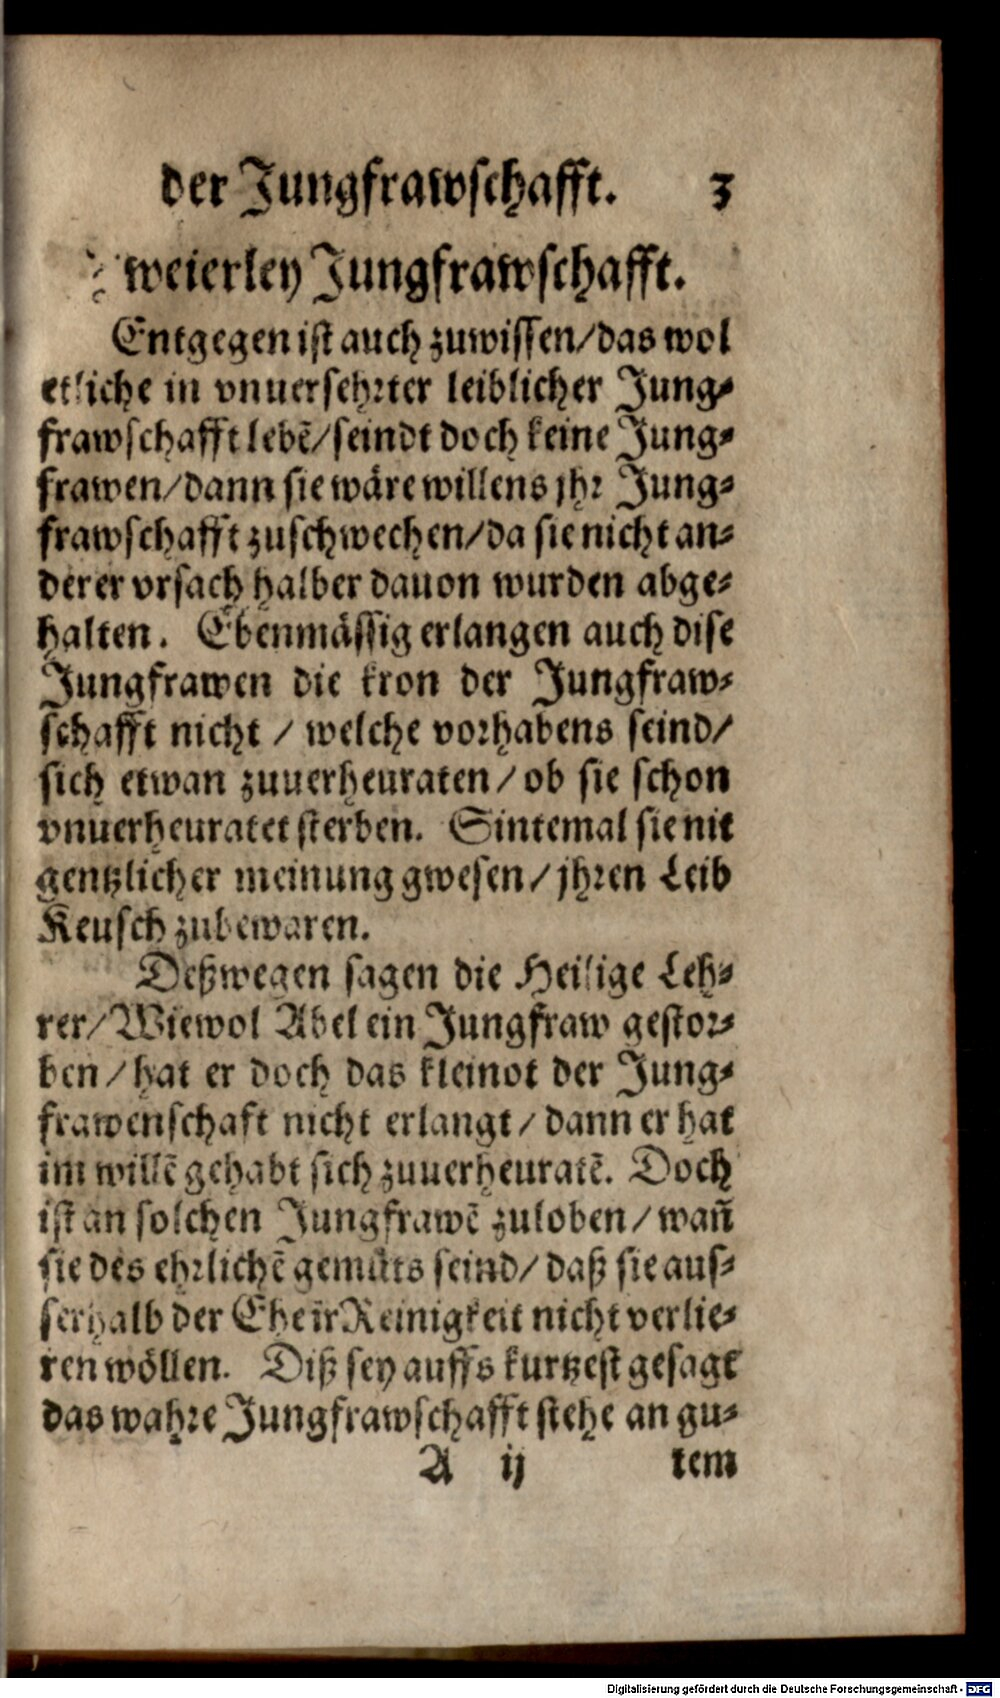 der Jungfrawschafft. 3
Zweierley Jungfrawschafft.
Entgegen ist auch zuwissen/das wol
etliche in vnuersehrter leiblicher Jung-
frawschafft lebē/seindt doch keine Jung-
frawen/dann sie wäre willens jhr Jung-
frawschafft zuschwechen/da sie nicht an-
derer vrsach halber dauon wurden abge-
halten. Ebenmässig erlangen auch dise
Jungfrawen die kron der Jungfraw-
schafft nicht / welche vorhabens seind/
sich etwan zuuerheuraten/ob sie schon
vnuerheuratet sterben. Sintemal sie nit
gentzlicher meinung gwesen/jhren Leib
Keusch zubewaren.
Deßwegen sagen die Heilige Leh-
rer/Wiewol Abel ein Jungfraw gestor-
ben/hat er doch das kleinot der Jung-
frawenschaft nicht erlangt/dann er hat
im willē gehabt sich zuuerheuratē. Doch
ist an solchen Jungfrawē zuloben/wañ
sie des ehrlichē gemüts seind/daß sie aus-
serhalb der Ehe ir Reinigkeit nicht verlie-
ren wöllen. Diß sey auffs kurtzest gesagt
das wahre Jungfrawschafft stehe an gu-
A ij tem
Digitalisierung gefördert durch die Deutsche Forschungsgemeinschaft - DFG